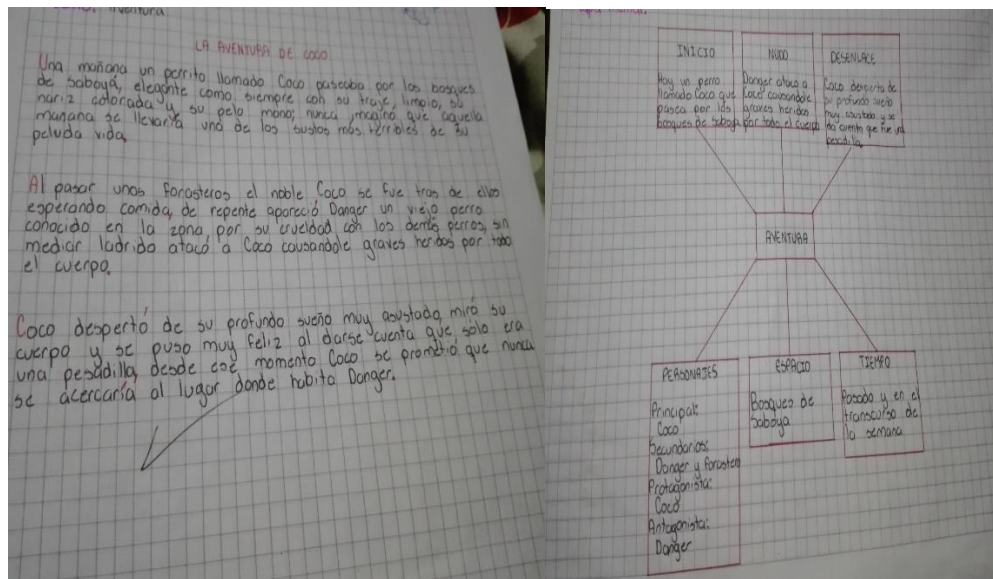 Aventura
LA AVENTURA DE COCO
Una mañana un perrito llamado Coco paseaba por los bosques
de Saboya, elegante como siempre con su traje, limpio, su
nariz colorada y su pelo mono; nunca imaginó que aquella
mañana se llevaría uno de los sustos mas terribles de su
peluda vida.
Al pasar unos forasteros el noble Coco se fue tras de ellos
esperando comida, de repente apareció Danger un viejo perro
conocido en la zona, por su crueldad con los demás perros, sin
mediar ladrido atacó a Coco causandole graves heridas por todo
el cuerpo.
Coco despertó de su profundo sueño muy asustado, miró su
cuerpo y se puso muy feliz al darse cuenta que sólo era
una pesadilla, desde ese momento Coco se prometió que nunca
se acercaría al lugar donde habita Danger.
INICIO
Hay un perro
llamado Coco que
pasea por los
bosques de Saboya
NUDO
Danger ataco a
Coco causandole
graves heridas
por todo el cuerpo
DESENLACE
Coco despierta de
su profundo sueño
muy asustado y se
da cuenta que fue una
pesadilla
AVENTURA
PERSONAJES
Principal:
Coco
Secundarios:
Danger y forasteros
Protagonista:
Coco
Antagonista:
Danger
ESPACIO
Bosques de
Saboya
TIEMPO
Pasado y en el
transcurso de
la semana